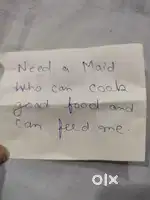 Need a Maid
Who can cook
good food and
can feed me.
OLX